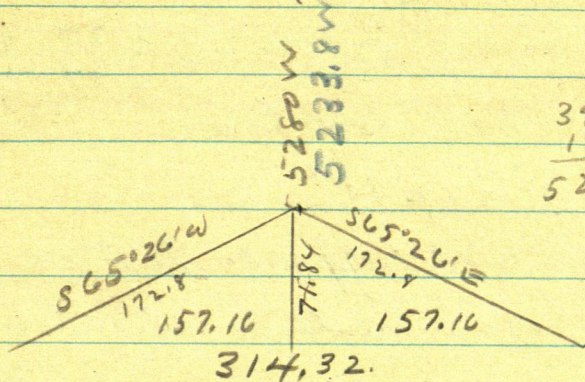 5280 W
5233.8 W
S65°26'W
172.8
157.16
71.84
S65°26'E
172.8
157.16
314.32.
1
52